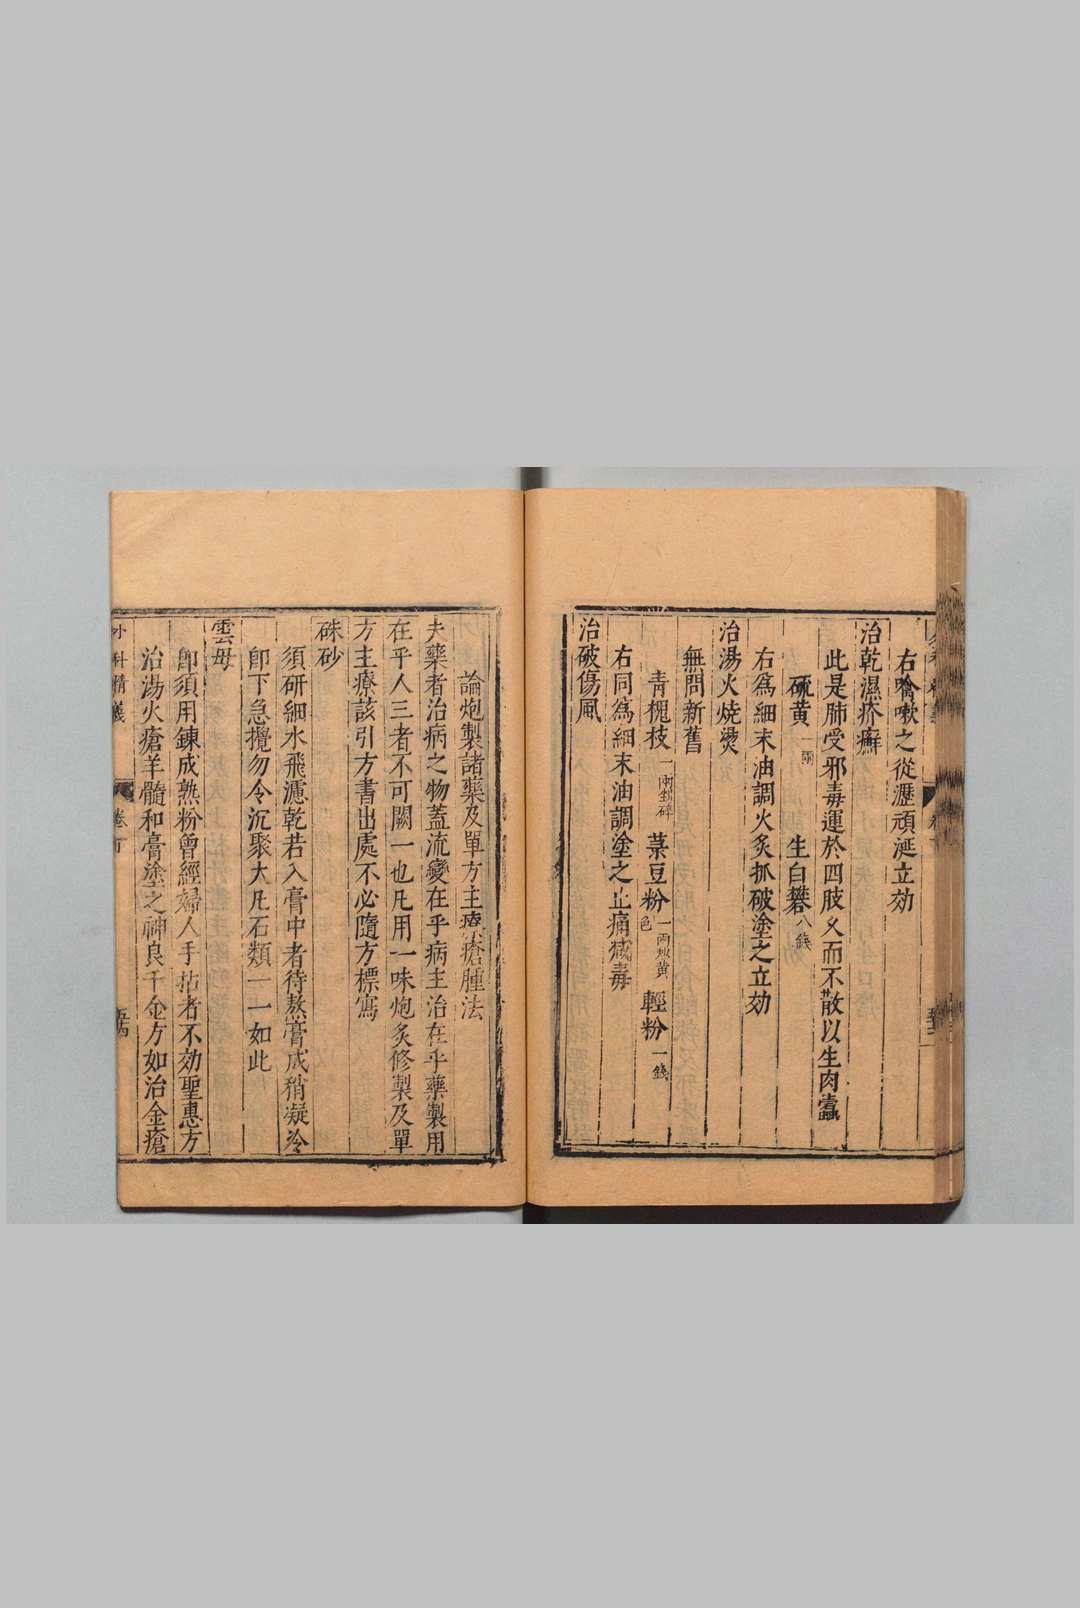 右噙嗽之從瀝頑涎立効
治乾濕疥癬
此是肺受邪毒運於四肢又而不散以生肉蠹
硫黄一兩 生白礬八錢
右爲細末油調火炙抓破塗之立効
治湯火燒燙
無問新舊
青槐枝一兩剉碎 菉豆粉一兩炒黄色 輕粉一錢
右同爲細末油調塗之止痛減毒
治破傷風
論炮製諸藥及單方主療瘡腫法
夫藥者治病之物蓋流變在乎病主治在乎藥製用
在乎人三者不可闕一也凡用一味炮炙修製及單
方主療該引方書出處不必隨方標寫
硃砂
須研細水飛濾乾若入膏中者待熬膏成稍凝冷
卽下急攪勿令沉聚大凡石類一一如此
雲母
卽須用鍊成熟粉曾經婦人手拈者不効聖惠方
治湯火瘡羊髓和膏塗之神良千金方如治金瘡
外科精義 卷下